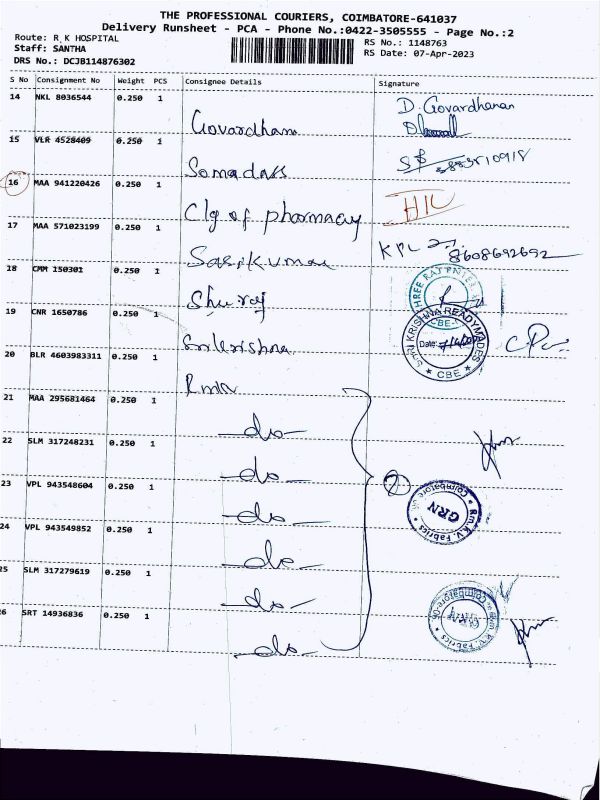 THE PROFESSIONAL COURIERS, COIMBATORE-641037
Delivery Runsheet - PCA - Phone No.:0422-3505555 - Page No.:2
Route: R K HOSPITAL
RS No.: 1148763
Staff: SANTHA
RS Date: 07-Apr-2023
DRS No.: DCJB114876302
S No Consignment No Weight PCS Consignee Details Signature
14 NKL 8036544 0.250 1 Govardham D. Govardhanan
15 VLR 4528409 0.250 1 Somadass
16 MAA 941220426 0.250 1 Clg of pharmacy
17 MAA 571023199 0.250 1 Sasikumar 8608692692
18 CMM 150301 0.250 1 Shuraj
19 CNR 1650786 0.250 1 Srikrishna SHRI KRISHNA READYMADES Date: CBE
20 BLR 4603983311 0.250 1
21 MAA 295681464 0.250 1 -do-
22 SLM 317248231 0.250 1 -do-
23 VPL 943548604 0.250 1 -do- Rm.K.V. Fabrics Coimbatore GRN
24 VPL 943549852 0.250 1 -do-
25 SLM 317279619 0.250 1 -do-
26 SRT 14936836 0.250 1 -do-